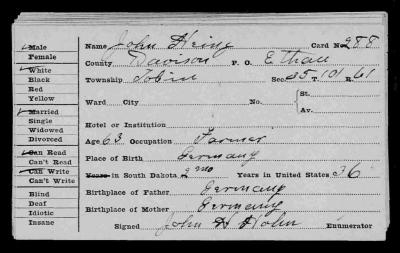 Male
Female
White
Black
Red
Yellow
Married
Single
Widowed
Divorced
Can Read
Can't Read
Can Write
Can't Write
Blind
Deaf
Idiotic
Insane
Name John Heing Card No 288
County Davison P. O. Ethan
Township Tobin Sec. 35 T. 101 R. 61
Ward City No. St.
Av.
Hotel or Institution
Age 63 Occupation Farmer
Place of Birth Germany
Years in South Dakota 2 mo Years in United States 36
Birthplace of Father Germany
Birthplace of Mother Germany
Signed John H Hohn Enumerator